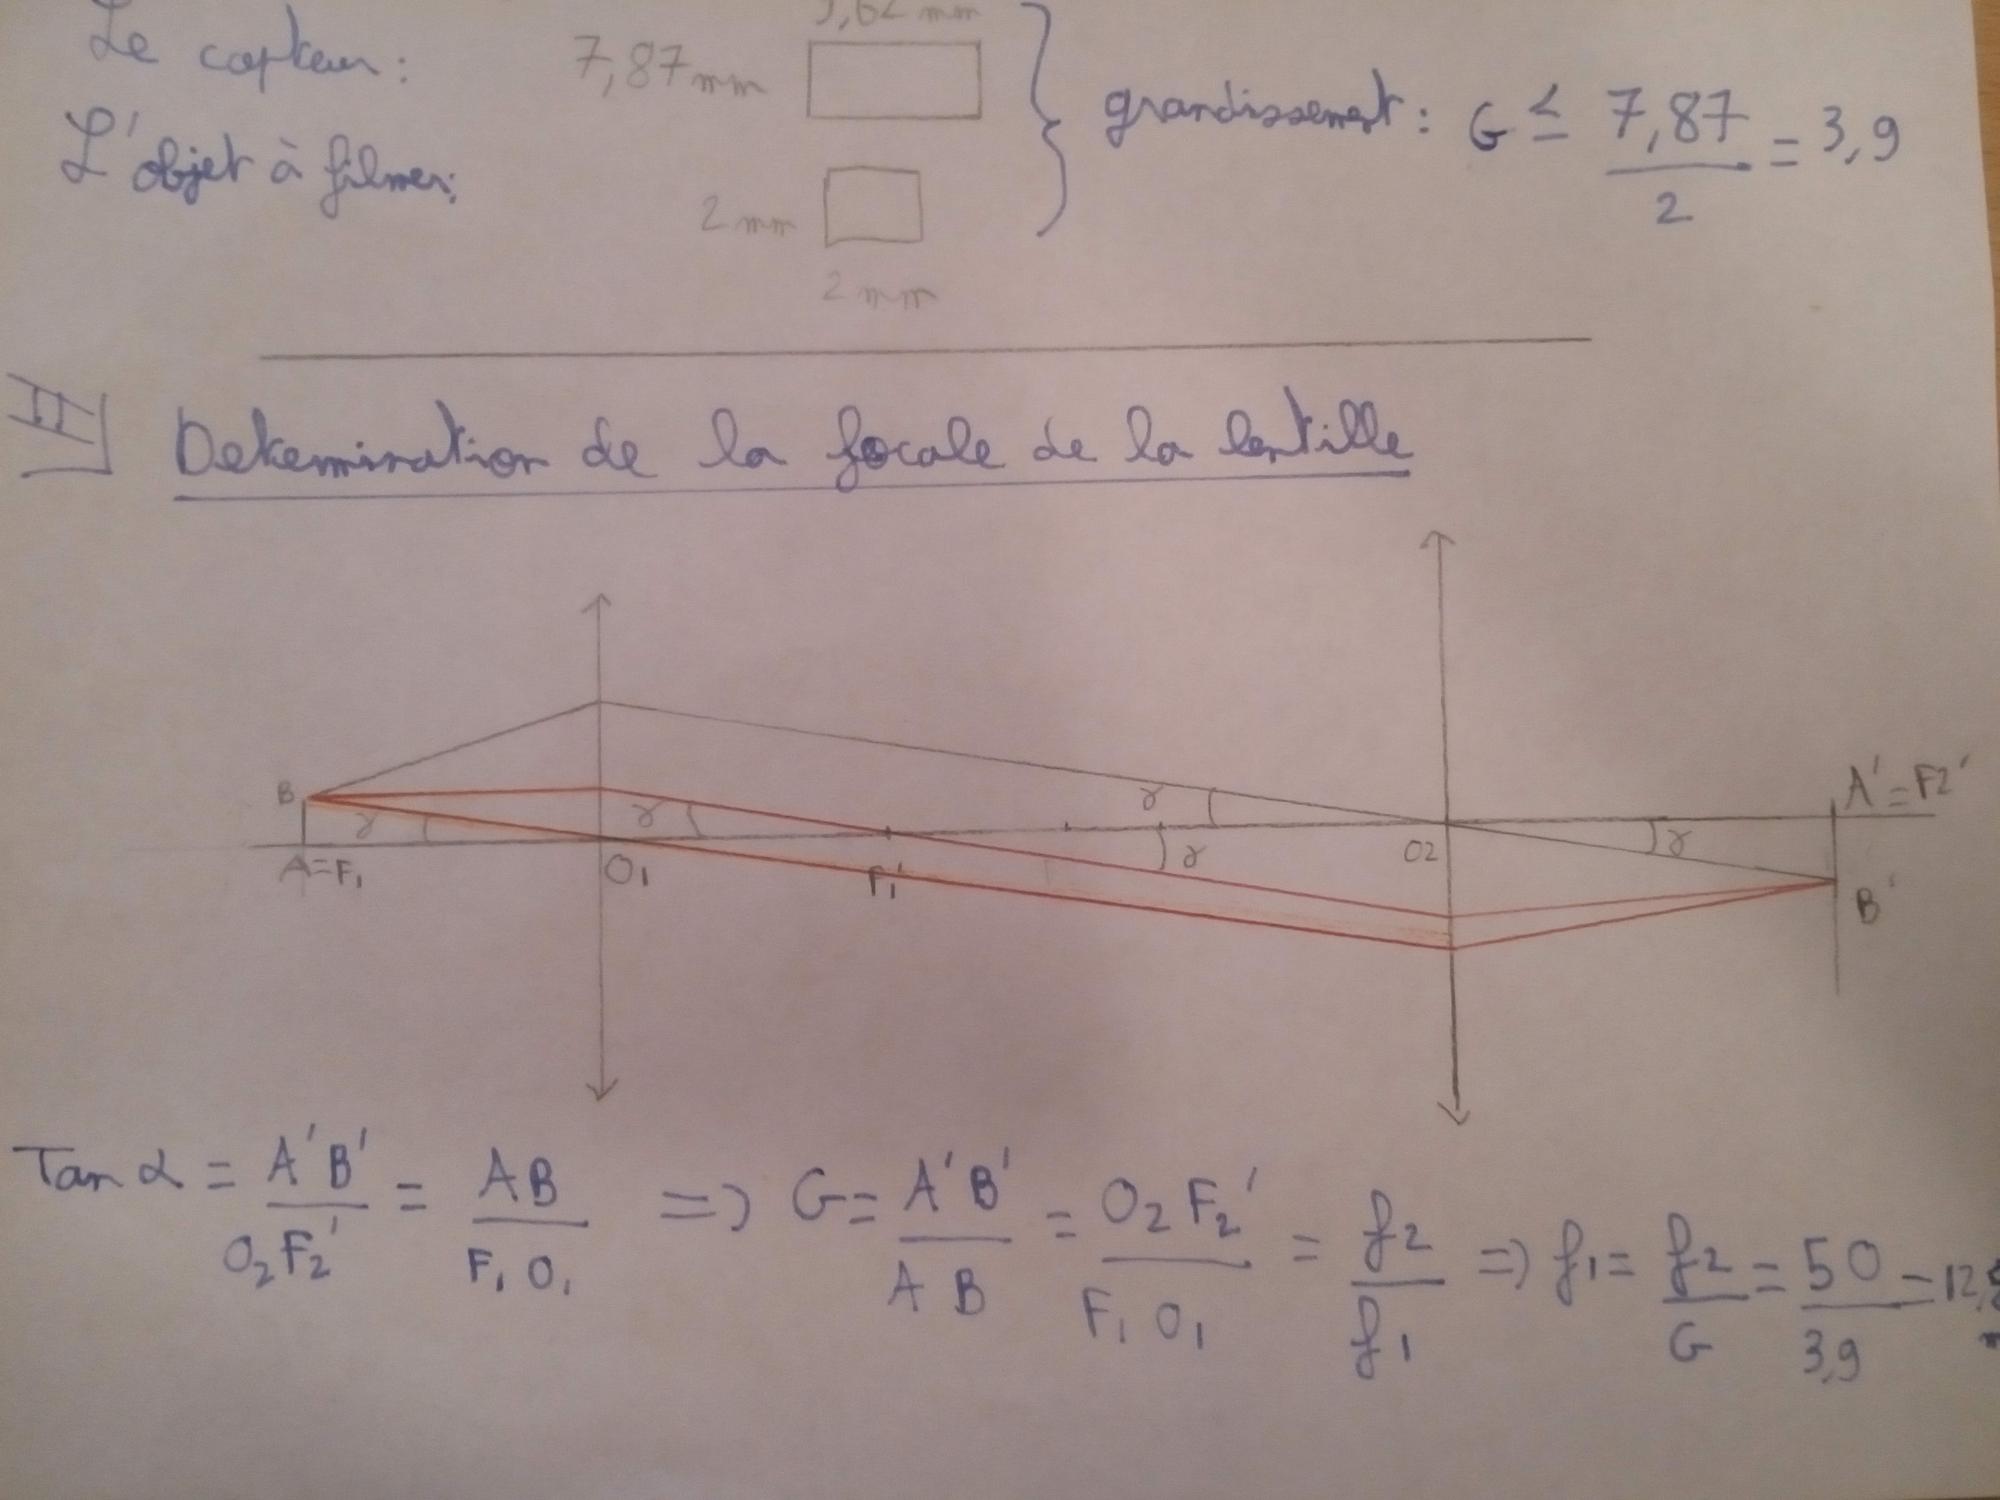 Le capteur: 7,87mm
L'objet à filmer:
2 mm
2 mm
grandissement: G ≤ 7,87/2 = 3,9
II] Determination de la focale de la lentille
B
A=F₁
O₁
F₁'
O2
A'=F2'
B'
γ γ γ γ γ
Tan α = A'B'/O₂F₂' = AB/F₁O₁ => G = A'B'/AB = O₂F₂'/F₁O₁ = f₂/f₁ => f₁ = f₂/G = 50/3,9 = 12,